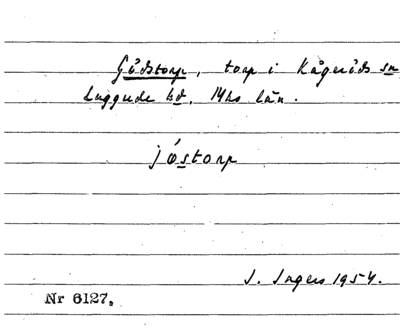 Gödstorp, torp i Kågeröds sn
Luggude hd, Mhs län.
jöstorp
S. Ingers 1954.
Nr 6127.